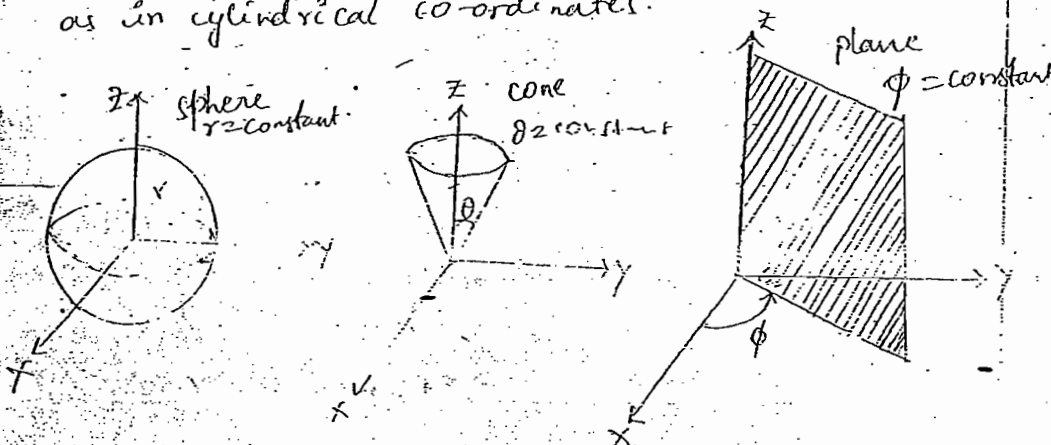 as in cylindrical co-ordinates.
Z sphere
r=constant.
r
Y
X
Z cone
θ=constant
θ
Y
X
Z
plane
ϕ=constant
Y
ϕ
X